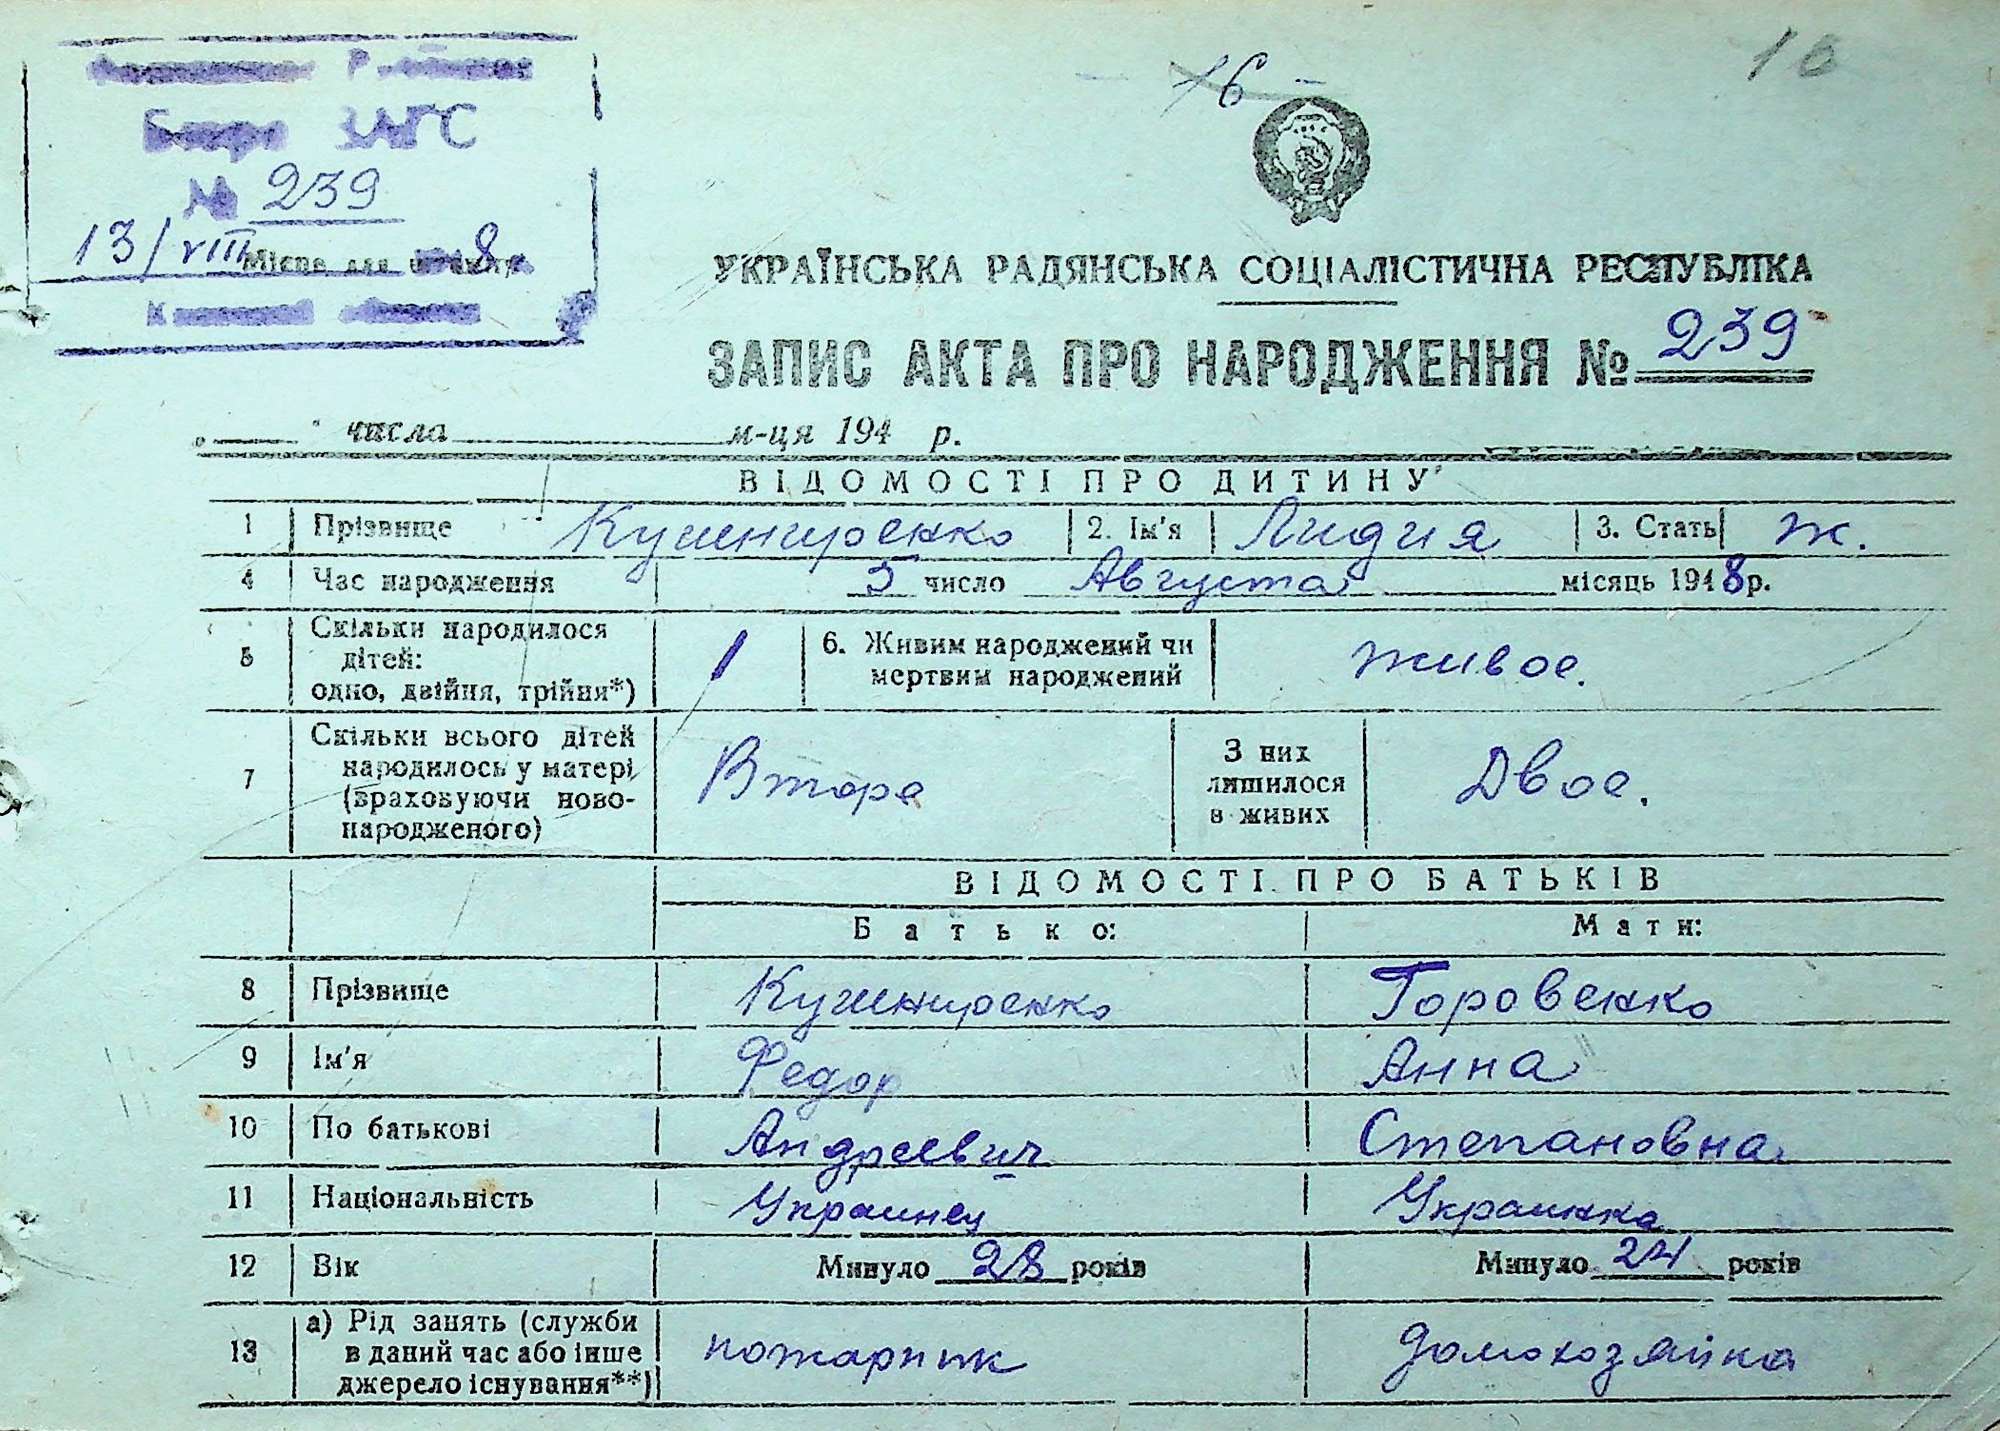 16
16
Бюро ЗАГС
№ 239
13/VIII 8
Місце для штампу
УКРАЇНСЬКА РАДЯНСЬКА СОЦІАЛІСТИЧНА РЕСПУБЛІКА
ЗАПИС АКТА ПРО НАРОДЖЕННЯ № 239
„ " числа м-ця 194 р.
ВІДОМОСТІ ПРО ДИТИНУ
1 Прізвище Кушниренко 2. Ім'я Лидия 3. Стать Ж.
4 Час народження 5 число Августа місяць 1948 р.
5 Скільки народилося дітей: одно, двійня, трійня*) 1 6. Живим народжений чи мертвим народжений живое.
7 Скільки всього дітей народилось у матері (враховуючи новонародженого) Второе З них лишилося в живих Двое.
ВІДОМОСТІ ПРО БАТЬКІВ
Батько: Мати:
8 Прізвище Кушниренко Горовенко
9 Ім'я Федор Анна
10 По батькові Андреевич Степановна
11 Національність Украинец Украинка
12 Вік Минуло 28 років Минуло 24 років
13 а) Рід занять (служби в даний час або інше джерело існування**) пожарник домохозяйка